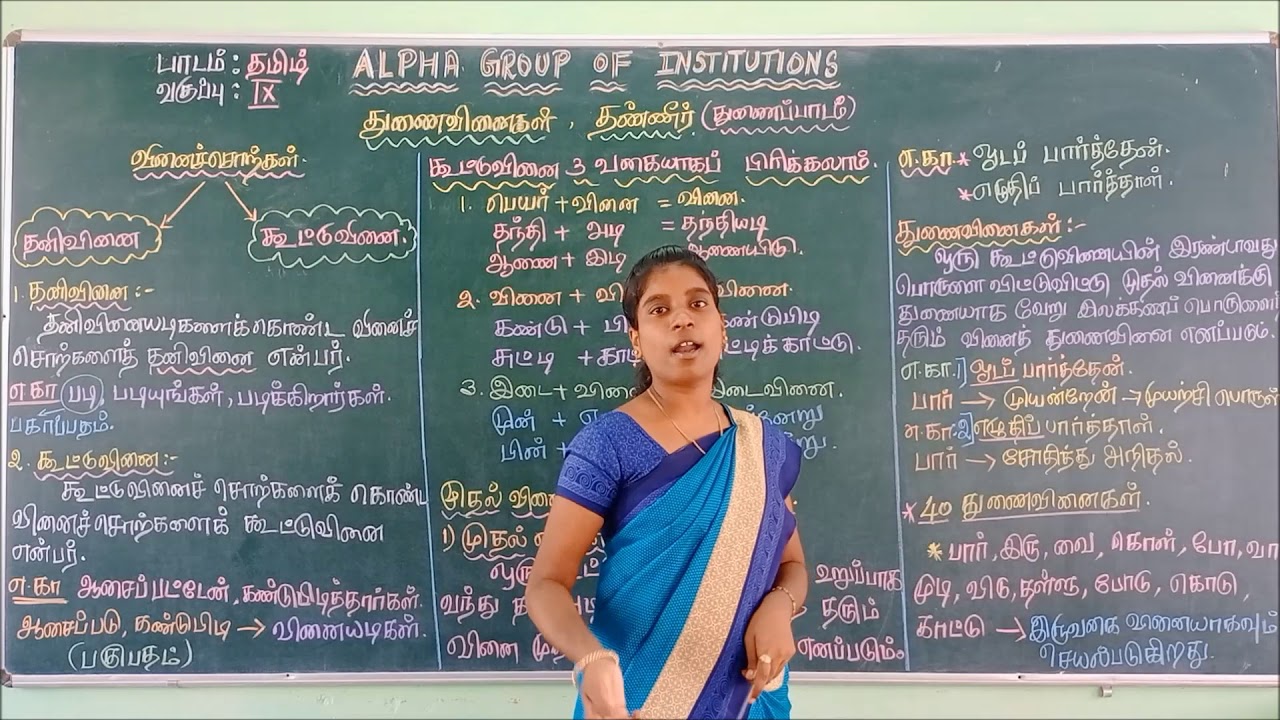 பாடம் : தமிழ்
வகுப்பு : IX
ALPHA GROUP OF INSTITUTIONS
துணைவினைகள் , தண்ணீர் (துணைப்பாடம்)
வினைச்சொற்கள்.
தனிவினை
கூட்டுவினை.
1. தனிவினை :-
தனிவினையடிகளைக்கொண்ட வினைச்
சொற்களைத் தனிவினை என்பர்.
எ.கா படி, படியுங்கள், படிக்கிறார்கள்.
பகாப்பதம்.
2. கூட்டுவினை:-
கூட்டுவினைச் சொற்களைக் கொண்ட
வினைச்சொற்களைக் கூட்டுவினை
என்பர்.
எ.கா ஆசைப்பட்டேன், கண்டுபிடித்தார்கள்.
ஆசைப்படு, கண்டுபிடி → வினையடிகள்.
(பகுபதம்)
கூட்டுவினை 3 வகையாகப் பிரிக்கலாம்.
1. பெயர் + வினை = வினை.
தந்தி + அடி = தந்தியடி
ஆணை + இடு ஆணையிடு.
2. வினை + வினை.
கண்டு + பி ண்டுபிடி
சுட்டி + காட் ட்டிக்காட்டு.
3. இடை + வினை டைவினை.
முன் + ன்னேறு
பின் +
முதல் வினை
1) முதல்
உறுப்பாக
வந்து தரும்
வினை எனப்படும்.
எ.கா * ஓடப் பார்த்தேன்.
* எழுதிப் பார்த்தாள்.
துணைவினைகள் :-
ஒரு கூட்டுவினையின் இரண்டாவது
பொருளை விட்டுவிட்டு முதல் வினைக்கு
துணையாக வேறு இலக்கணப் பொருளைத்
தரும் வினைத் துணைவினை எனப்படும்.
எ.கா. 1) ஓடப் பார்த்தேன்.
பார் → முயன்றேன் → முயற்சி பொருள்
எ.கா. 2) எழுதிப் பார்த்தாள்.
பார் → சோதித்து அறிதல்.
* 40 துணைவினைகள்.
* பார், இரு, வை, கொள், போ, வா
முடி, விடு, தள்ளு, போடு, கொடு,
காட்டு → இருவகை வினையாகவும்
செயல்படுகிறது.